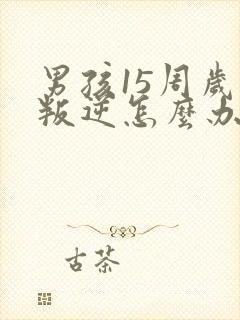 男孩15周歲
叛逆怎麼办
古茶